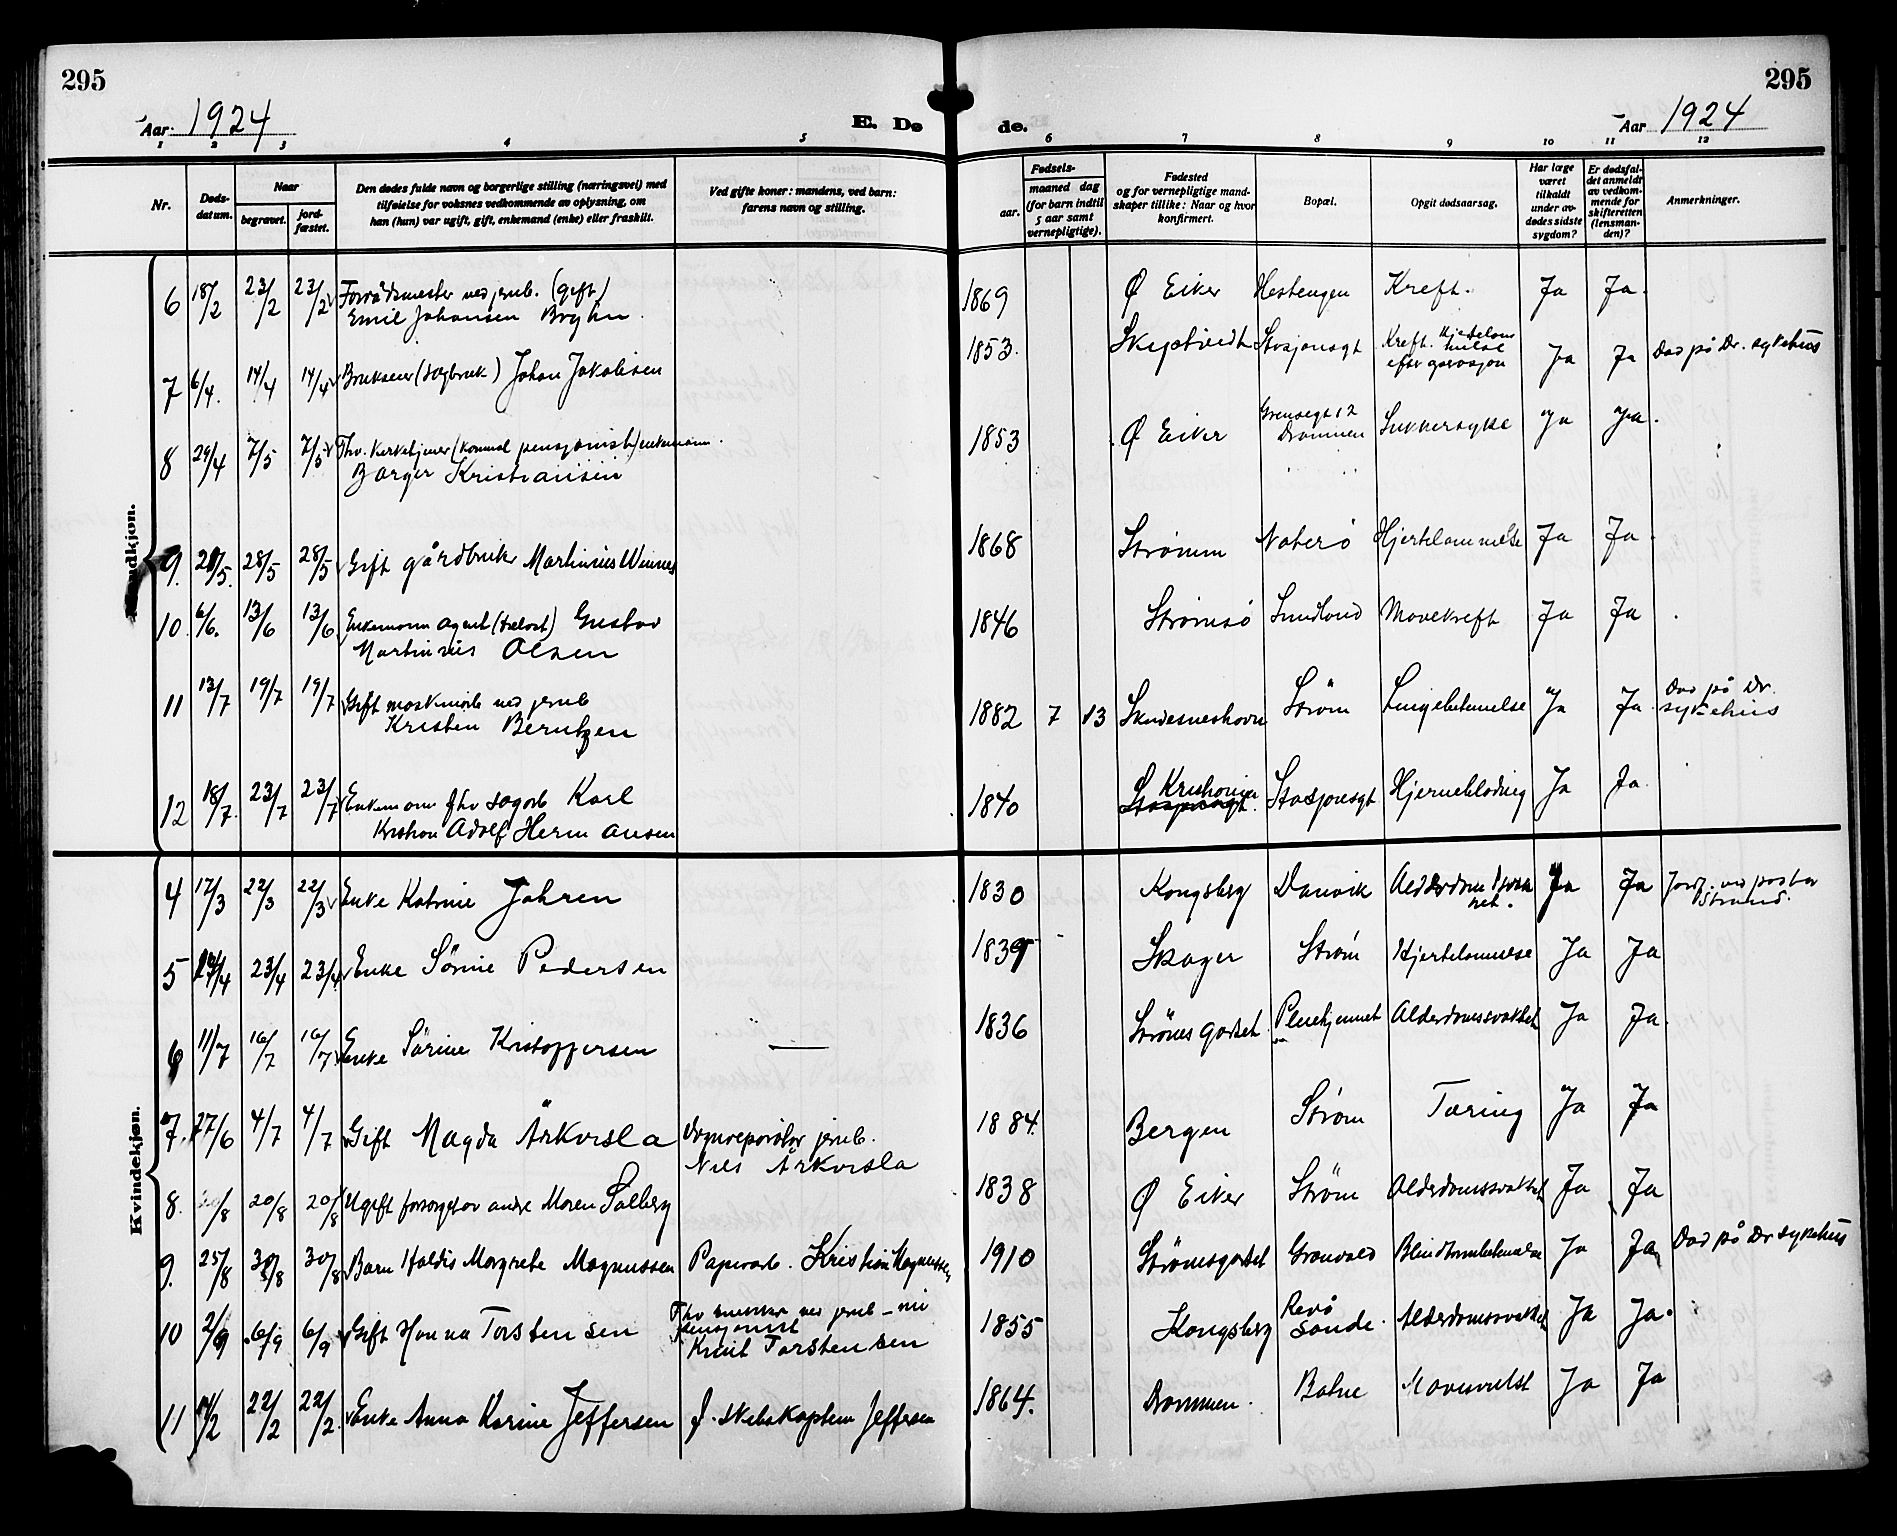 295
295
Aar 1924
E. Døde.
Aar 1924
1 2 3 4 5 6 7 8 9 10 11 12
Nr.
Døds-
datum.
Naar
begravet.
jord-
fæstet.
Den dødes fulde navn og borgerlige stilling (næringsvei) med
tilføielse for voksnes vedkommende av oplysning, om
han (hun) var ugift, gift, enkemand (enke) eller fraskilt.
Ved gifte koner: mandens, ved barn:
farens navn og stilling.
Fødsels-
aar.
maaned dag
(for barn indtil
5 aar samt
vernepligtige).
Fødested
og for vernepligtige mand-
skaper tillike: Naar og hvor
konfirmert.
Bopæl.
Opgit dødsaarsag.
Har læge
været
tilkaldt
under av-
dødes sidste
sygdom?
Er dødsfal-
det anmeldt
av vedkom-
mende for
skifteretten
(lensman-
den)?
Anmerkninger.
Mandkjøn.
6 18/2 23/2 23/2 Forrådsmester ved jernb. (gift) 1869 Ø Eiker Hestengen Kreft. Ja Ja.
Emil Johansen Bryhn.
7 6/4. 14/4 14/4 Brukseier (sagbruk) Johan Jakobsen 1853. Stasjonsgt Kreft. Hjertelam
melse
efter operasjon Ja Ja Død på Dr. sykehus
8 29/4 7/5 7/5 Fhv. Kirketjener (komunal pensjonist) enkemann. 1853 Ø Eiker Grensegt 12
Drammen Sukkersyke Ja Ja.
Borger Kristiansen
9. 28/5 28/5 Gift gårdbruk. Martinius Winnes 1868 Strømm Nøterø Hjertelammelse Ja Ja.
10. 6/6. 13/6 13/6 Enkemann agent (trelast) Gustav 1846 Strømsø Sundland Mavekreft Ja Ja
Martinius Olsen
11 13/7 19/7 19/7 Gift maskinarb ved jernb 1882 7 13 Skudesneshavn Strøm Lungebetennelse Ja Ja Død på Dr.
sykehus
Kristen Berntzen
12 18/7. 23/7 23/7 Enkemann fhv sagarb Karl 1840 Kristiania Stasjonsgt Hjerneblødning Ja Ja.
Kristian Adolf Hermansen
Kvindekjøn.
4 17/3 22/3 22/3 Enke Katrine Johren 1830 Kongsberg Danvik Ja Ja Jordf. ved pastor
Strand.
5 23/4 23/4 Enke Sørine Pedersen 1839 Skoger Strøm Hjertelammelse Ja Ja
6 11/7 16/7 16/7 Enke Sørine Kristoffersen — 1836 Strømsgodset Pleiehjemmet Alderdomssvakhet Ja Ja.
7. 27/6 4/7 4/7 Gift Magda Årkvisla Vognreparatør jernb. 1884. Bergen Strøm Tæring Ja Ja
Nils Årkvisla
8. 20/8 20/8 Ugift forsørget av andre Maren Solberg 1838 Ø Eiker Strøm Alderdomssvakhet Ja Ja
9. 25/8 30/8 30/8 Barn Haldis Margrete Magnussen Papirarb. Kristian Magnussen 1910 Strømsgodset Grønvold Blindtarmbetennelse Ja Ja Død på Dr sykehus
10 2/9 6/9 6/9 Gift Hanna Torstensen Fhv ved jernb – nu
pensjonist
Knut Torstensen 1855 Kongsberg Revå
Sande. Alderdomssvakhet Ja Ja.
11 22/2 22/2. Enke Anna Karine Jeffersen f. skibskaptein Jeffersen 1864. Drammen. Botne Mavesvulst Ja Ja